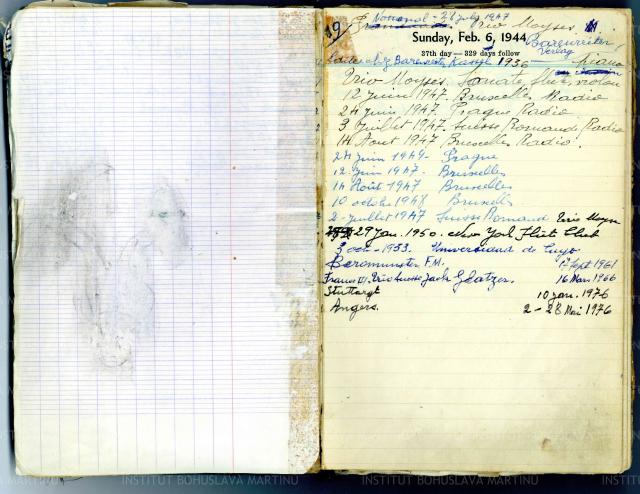 19
National - 31 July 1947
Trio Moyses
Sunday, Feb. 6, 1944
Barenreiter
Verlag
37th day — 329 days follow
chez Barenreiter Kassel 1936 — piano
Trio Moyses. Sonate flute, violon
12 Juin 1947. Bruxelles Radio
24 Juin 1947. Prague Radio
3 Juillet 1947. Suisse Romande Radio
14 Aout 1947 Bruxelles Radio.
24 Juin 1947- Prague
12 Juin 1947 Bruxelles
14 Août 1947 Bruxelles
10 octobr 1947 Bruxelles
2- juillet 1947 Suisse Romand Trio Moyse
29 Jan. 1950. New York Flute Club
3 oct- 1953. Universidad de Cuyo
Beromunster F.M. 17 Sept 1961
France III. Trio Jack Glatzer. 16 Mars 1966
Stuttargt 10 jan. 1976
Angers. 2-28 Mai 1976
INSTITUT BOHUSLAVA MARTINU INSTITUT BOHUSLAVA MARTINU